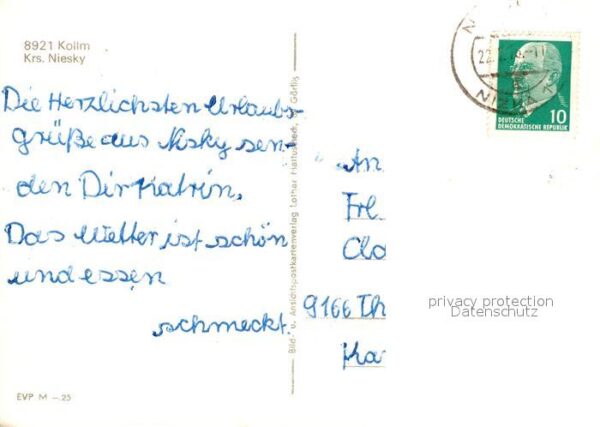 8921 Kollm
Krs. Niesky
Die Herzlichsten Urlaubs-
grüße aus Nisky sen-
den Dir Katrin.
Das Wetter ist schön
und essen
schmeckt.
EVP M -.25
Bild- u. Ansichtspostkartenverlag Lothar Görlitz
An
Frl.
Cla
9166 Th
Ka
DEUTSCHE
DEMOKRATISCHE REPUBLIK
10
privacy protection
Datenschutz